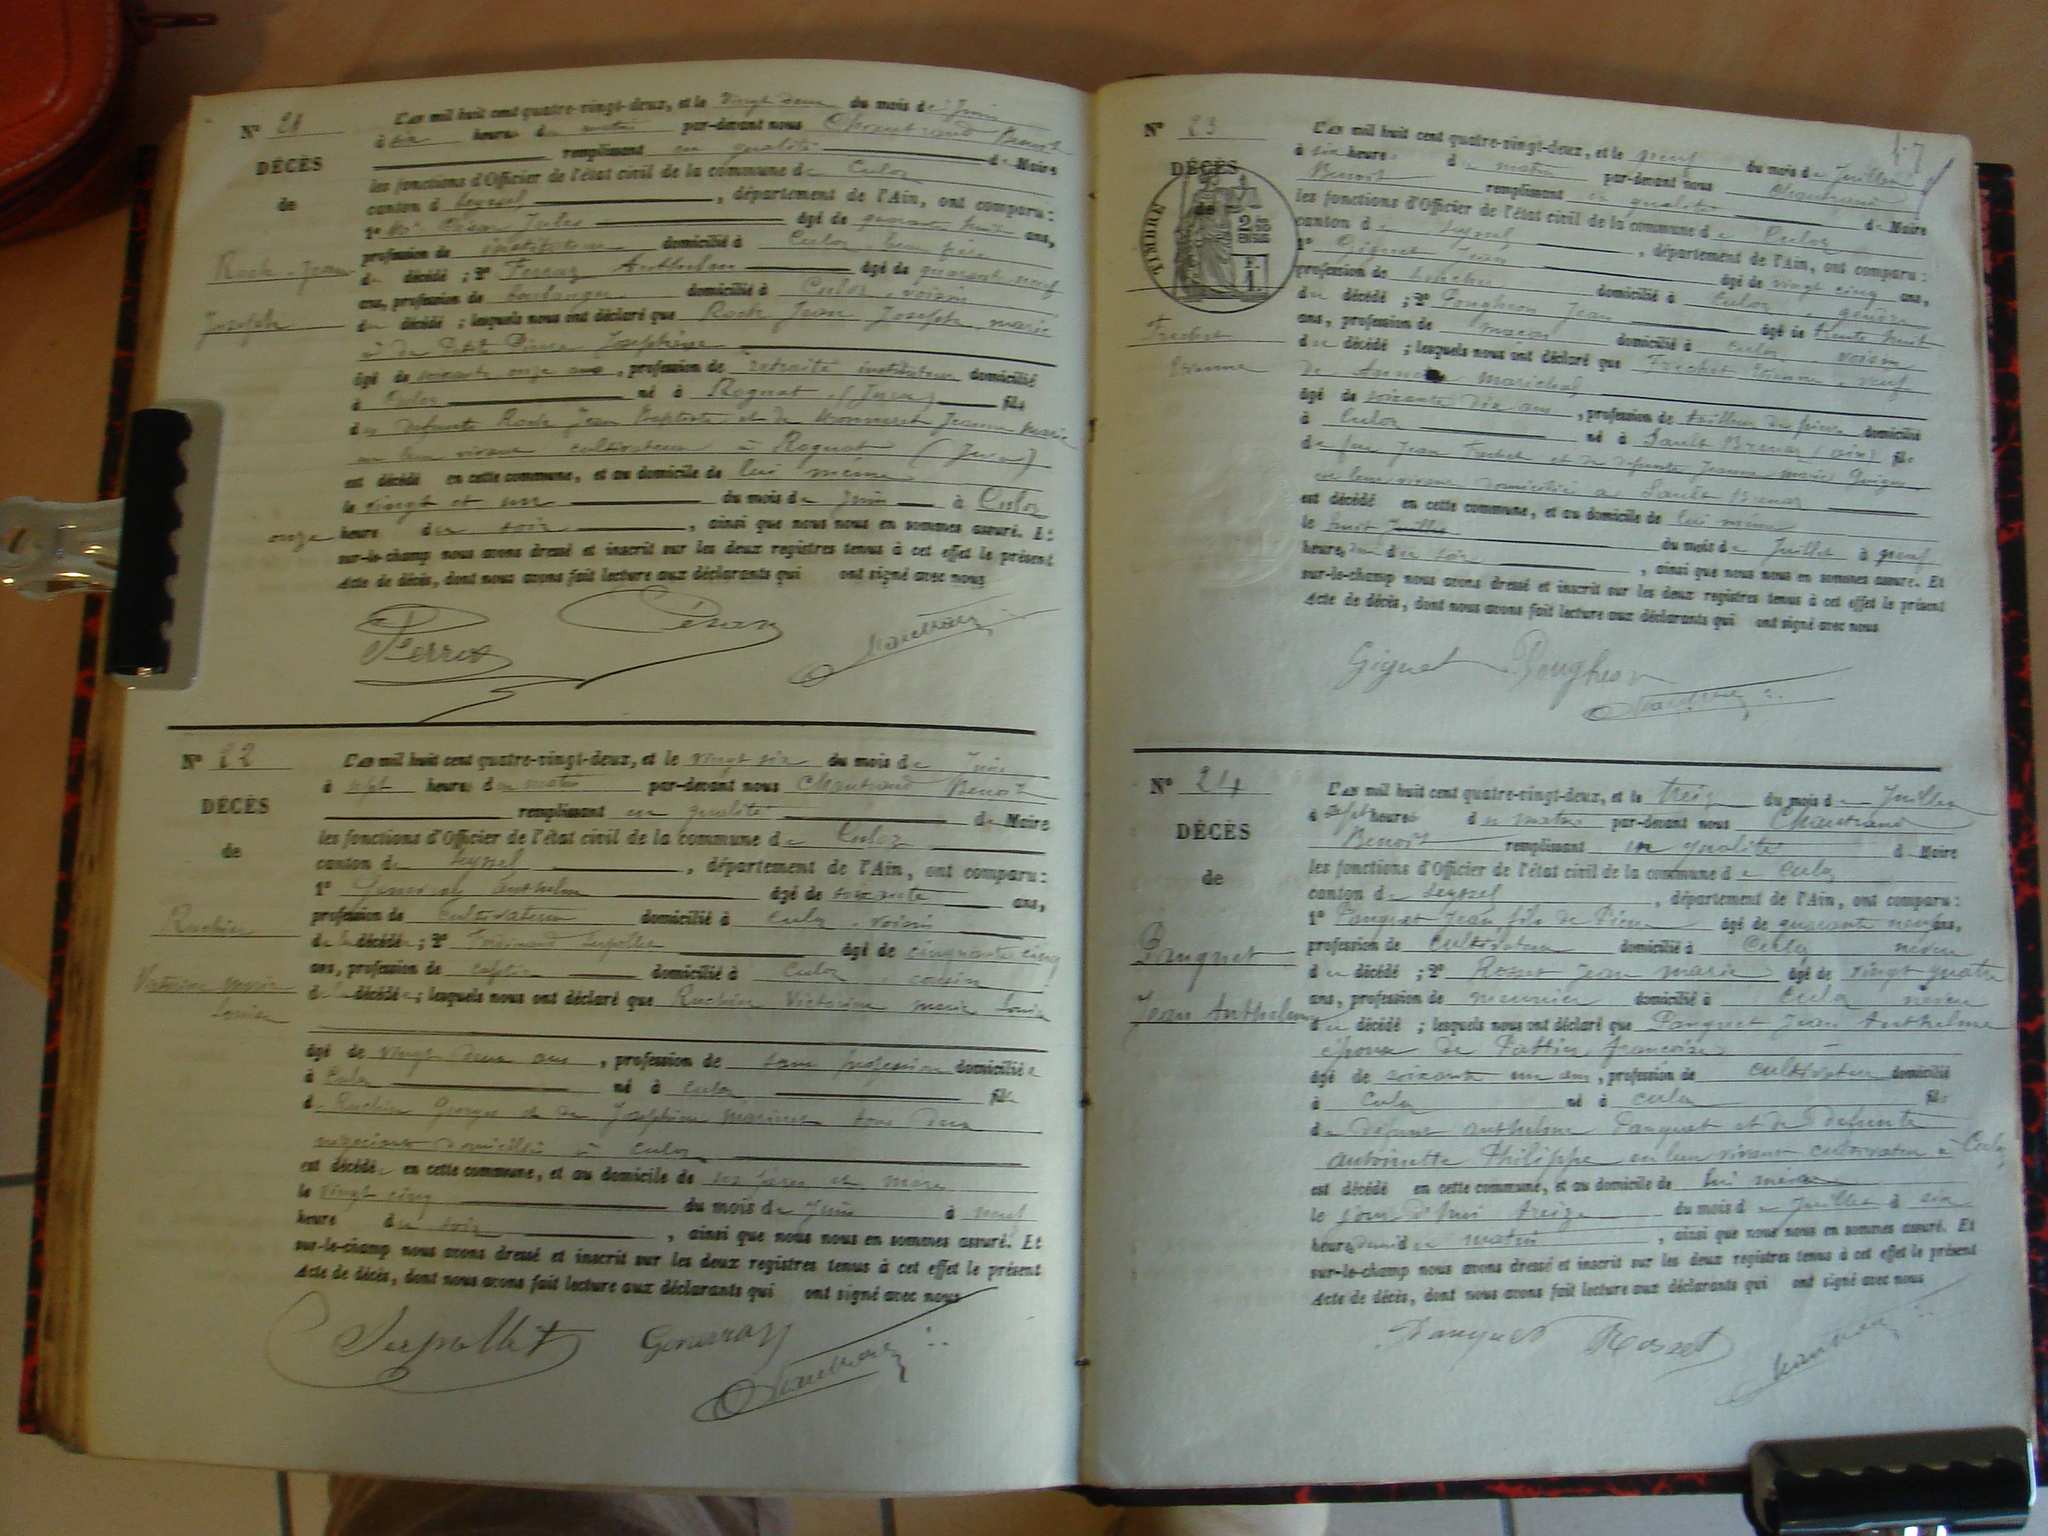 N° 21
DÉCÈS
de
Roch Jean
Joseph
L'an mil huit cent quatre-vingt-deux, et le vingt deux du mois de Juin
à six heures du matin par-devant nous Chautrand Benoit
remplissant en qualité de Maire
les fonctions d'Officier de l'état civil de la commune de Culoz
canton de Seyssel, département de l'Ain, ont comparu:
1° César Jules âgé de quarante huit ans,
profession de instituteur domicilié à Culoz, beau frère
du décédé; 2° Anthelme âgé de quarante neuf
ans, profession de boulanger domicilié à Culoz, voisin
du décédé; lesquels nous ont déclaré que Roch Jean Joseph, marié
à de Petit Pierre Josephine
âgé de soixante onze ans, profession de retraité instituteur domicilié
à Culoz né à Rognat (Jura) fils
des défunts Roch Jean Baptiste et de Jeanne Marie
en leur vivant cultivateurs à Rognat (Jura)
est décédé en cette commune, et au domicile de lui même
le vingt et un du mois de Juin à Culoz
onze heure du soir, ainsi que nous nous en sommes assuré. Et
sur-le-champ nous avons dressé et inscrit sur les deux registres tenus à cet effet le présent
Acte de décès, dont nous avons fait lecture aux déclarants qui ont signé avec nous
César
Chautrand
N° 22
DÉCÈS
de
Ruchier
Victorine Marie
Louise
L'an mil huit cent quatre-vingt-deux, et le vingt six du mois de Juin
à sept heures du matin par-devant nous Chautrand Benoit
remplissant en qualité de Maire
les fonctions d'Officier de l'état civil de la commune de Culoz
canton de Seyssel, département de l'Ain, ont comparu:
1° Anthelme âgé de soixante ans,
profession de cultivateur domicilié à Culoz, voisin
de la décédée; 2° Ferdinand Serpollet âgé de cinquante cinq
ans, profession de cafetier domicilié à Culoz, cousin
de la décédée; lesquels nous ont déclaré que Ruchier Victorine Marie Louise
âgé de vingt deux ans, profession de sans profession domiciliée
à Culoz né à Culoz fille
de Ruchier Georges et de Josephine tous deux
négociants domiciliés à Culoz
est décédée en cette commune, et au domicile de ses père et mère
le vingt cinq du mois de Juin à neuf
heure du soir, ainsi que nous nous en sommes assuré. Et
sur-le-champ nous avons dressé et inscrit sur les deux registres tenus à cet effet le présent
Acte de décès, dont nous avons fait lecture aux déclarants qui ont signé avec nous
Serpollet
Chautrand
47
N° 23
DÉCÈS
de
TIMBRE
Frechet
Etienne
L'an mil huit cent quatre-vingt-deux, et le neuf du mois de Juillet
à six heures du matin par-devant nous Chautrand
Benoit remplissant en qualité de Maire
les fonctions d'Officier de l'état civil de la commune de Culoz
canton de Seyssel, département de l'Ain, ont comparu:
1° Giguet Jean âgé de vingt cinq ans,
profession de domicilié à Culoz, gendre
du décédé; 2° Pongheon Jean âgé de trente huit
ans, profession de maçon domicilié à Culoz voisin
du décédé; lesquels nous ont déclaré que Frechet Etienne, veuf
de Marichal
âgé de soixante dix ans, profession de tailleur de pierre domicilié
à Culoz né à Sault Brenaz (ain) fils
de feu Jean Frechet et de defunte Jeanne Marie
en leur vivant domiciliés à Sault Brenaz
est décédé en cette commune, et au domicile de lui même
le huit Juillet du mois de Juillet à neuf
heures du soir, ainsi que nous nous en sommes assuré. Et
sur-le-champ nous avons dressé et inscrit sur les deux registres tenus à cet effet le présent
Acte de décès, dont nous avons fait lecture aux déclarants qui ont signé avec nous
Giguet Pongheon
Chautrand
N° 24
DÉCÈS
de
Panguet
Jean Anthelme
L'an mil huit cent quatre-vingt-deux, et le treize du mois de Juillet
à sept heures du matin par-devant nous Chautrand
Benoit remplissant en qualité de Maire
les fonctions d'Officier de l'état civil de la commune de Culoz
canton de Seyssel, département de l'Ain, ont comparu:
1° Panguet Jean fils de Pierre âgé de quarante neuf ans,
profession de cultivateur domicilié à Culoz neveu
du décédé; 2° Rosset Jean Marie âgé de vingt quatre
ans, profession de meunier domicilié à Culoz neveu
du décédé; lesquels nous ont déclaré que Panguet Jean Anthelme
époux de Françoise
âgé de soixante un ans, profession de cultivateur domicilié
à Culoz né à Culoz fils
de défunt Anthelme Panguet et de défunte
Antoinette Philippe en leur vivant cultivateurs à Culoz
est décédé en cette commune, et au domicile de lui même
le jour d'hui treize du mois de Juillet à six
heures demi du matin, ainsi que nous nous en sommes assuré. Et
sur-le-champ nous avons dressé et inscrit sur les deux registres tenus à cet effet le présent
Acte de décès, dont nous avons fait lecture aux déclarants qui ont signé avec nous
Panguet Rosset
Chautrand